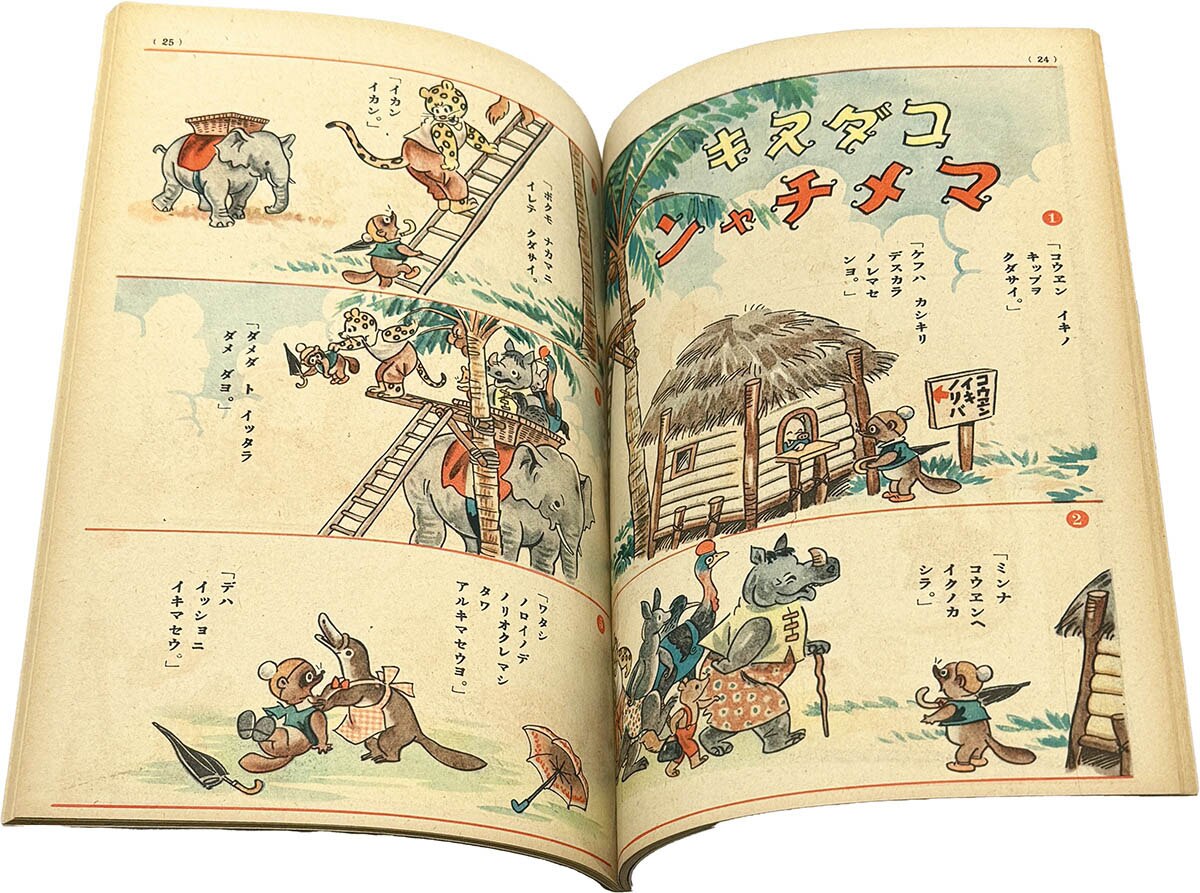 ( 24 )
コダヌキ
マメチャン
1
「コウヱン イキノ
キップヲ
クダサイ。」
「ケフハ カシキリ
デスカラ
ノレマセ
ンヨ。」
コウヱン
イキ
ノリバ
2
「ミンナ
コウヱンヘ
イクノカ
シラ。」
( 25 )
「ボクモ ナカマニ
イレテ クダサイ。
「イカン
イカン。」
「ダメダ ト イッタラ
ダメ ダヨ。」
5
「ワタシ
ノロイノデ
ノリオクレマシ
タワ
アルキマセウヨ。」
「デハ
イッショニ
イキマセウ。」